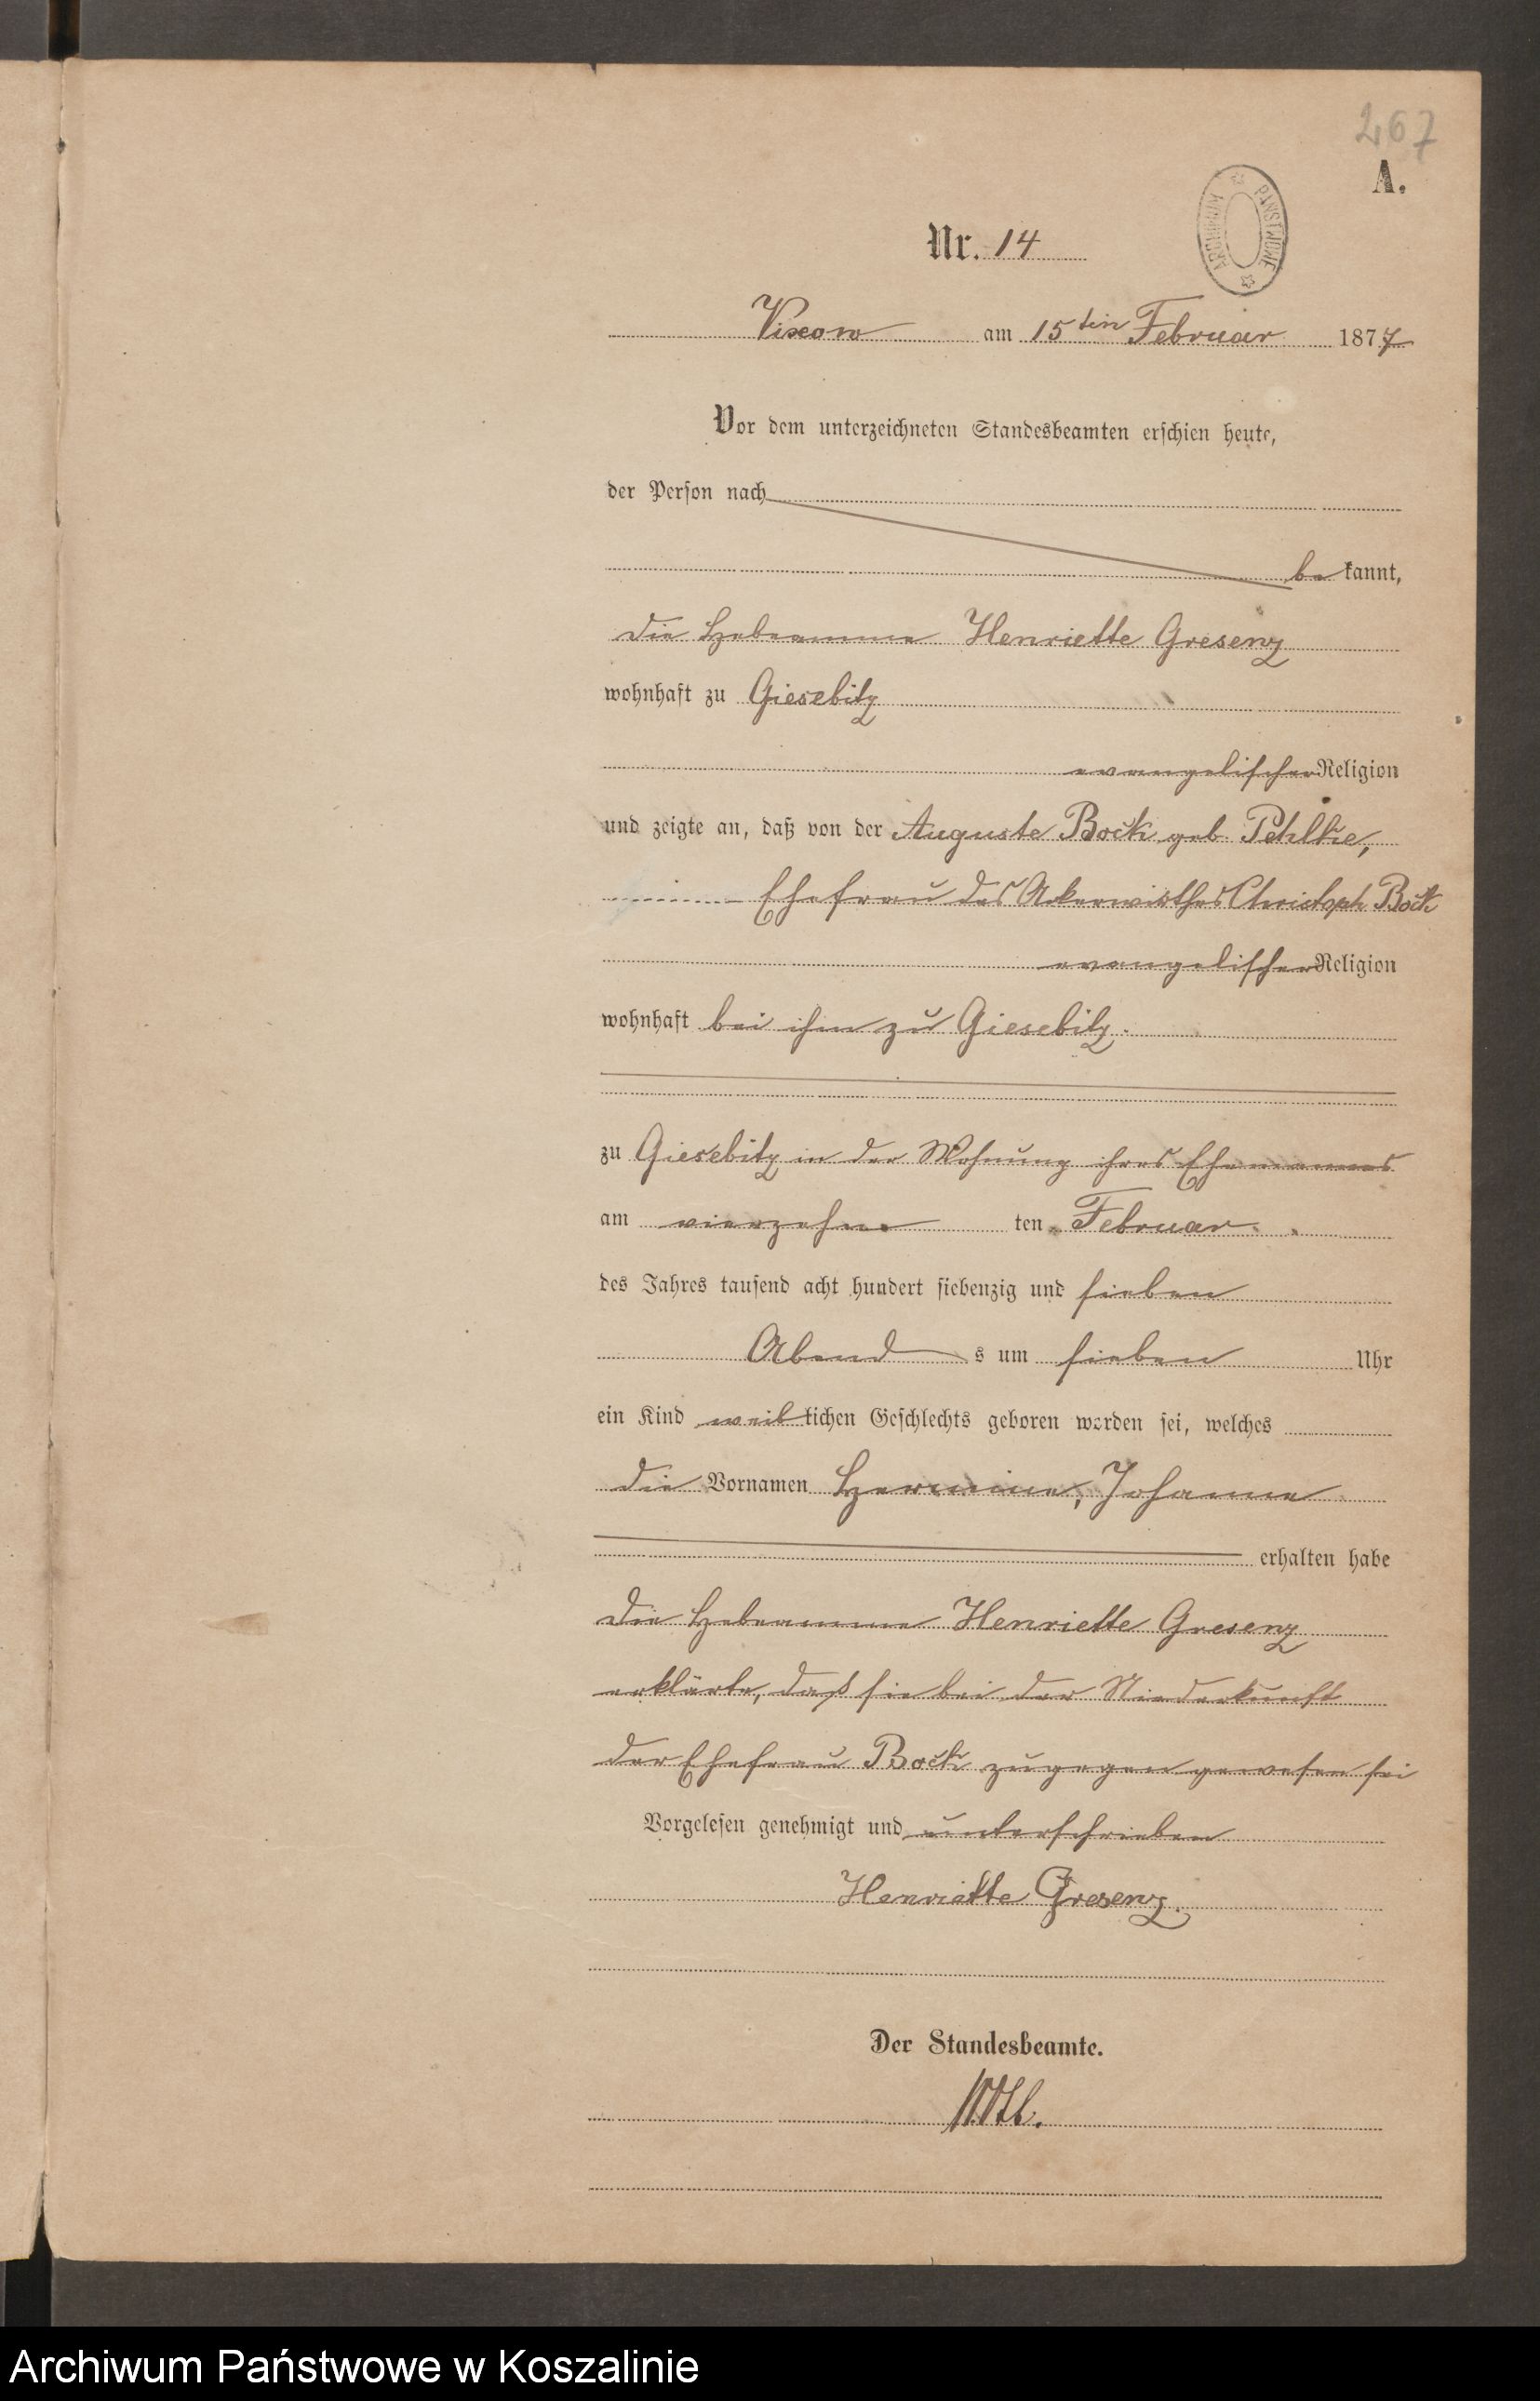 267
A.
ARCHIWUM PAŃSTWOWE
Nr. 14
Vixow am 15ten Februar 1877
Vor dem unterzeichneten Standesbeamten erschien heute,
der Person nach
be kannt,
die Hebeamme Henriette Gresenz
wohnhaft zu Giesebitz
evangelischer Religion
und zeigte an, daß von der Auguste Bock geb. Pehlke,
Ehefrau des Ackerwirthes Christoph Bock
evangelischer Religion
wohnhaft bei ihm zu Giesebitz.
zu Giesebitz in der Wohnung ihres Ehemannes
am vierzehn ten Februar
des Jahres tausend acht hundert siebenzig und sieben
Abend s um sieben Uhr
ein Kind weiblichen Geschlechts geboren worden sei, welches
die Vornamen Hermine, Johanne
erhalten habe
die Hebeamme Henriette Gresenz
erklärte, daß sie bei der Niederkunft
der Ehefrau Bock zugegen gewesen sei
Vorgelesen genehmigt und unterschrieben
Henriette Gresenz.
Der Standesbeamte.
Archiwum Państwowe w Koszalinie